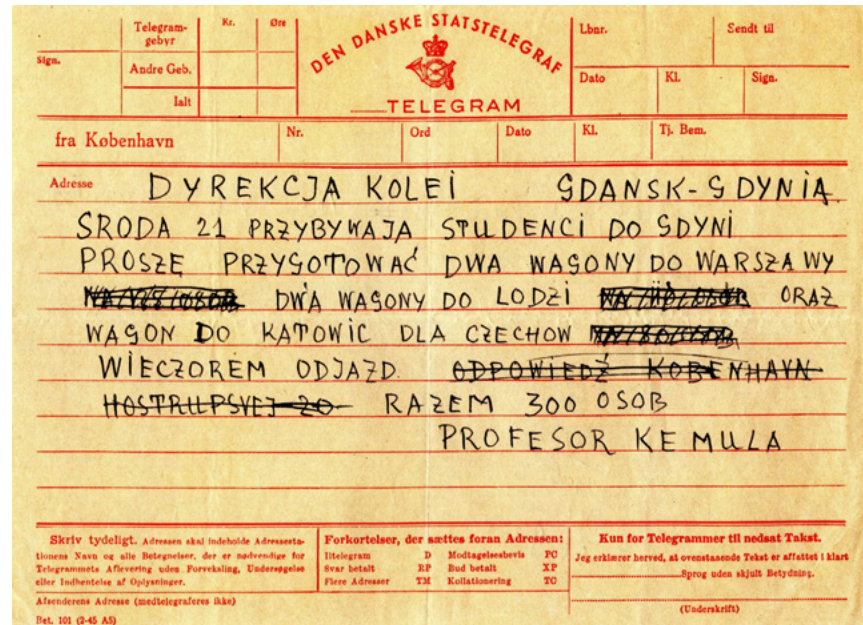 Telegram-gebyr Kr. Øre
Sign. Andre Geb.
Ialt
DEN DANSKE STATSTELEGRAF
TELEGRAM
Lbnr. Sendt til
Dato Kl. Sign.
fra København Nr. Ord Dato Kl. Tj. Bem.
Adresse DYREKCJA KOLEI GDANSK-GDYNIA
SRODA 21 PRZYBYWAJA STUDENCI DO GDYNI
PROSZĘ PRZYGOTOWAĆ DWA WAGONY DO WARSZAWY
DWA WAGONY DO LODZI ORAZ
WAGON DO KATOWIC DLA CZECHOW
WIECZOREM ODJAZD. ODPOWIEDŹ KOBENHAVN
HOSTRUPSVEJ 20 RAZEM 300 OSOB
PROFESOR KEMULA
Skriv tydeligt. Adressen skal indeholde Adressesta-
tionens Navn og alle Betegnelser, der er nødvendige for
Telegrammets Aflevering uden Forveksling, Undersøgelse
eller Indhentelse af Oplysninger.
Afsenderens Adresse (medtelegraferes ikke)
Bet. 101 (2-45 A5)
Forkortelser, der sættes foran Adressen:
Iltelegram D Modtagelsesbevis PC
Svar betalt RP Bud betalt XP
Flere Adresser TM Kollationering TC
Kun for Telegrammer til nedsat Takst.
Jeg erklærer herved, at ovenstaaende Tekst er affattet i klart
Sprog uden skjult Betydning.
(Underskrift)